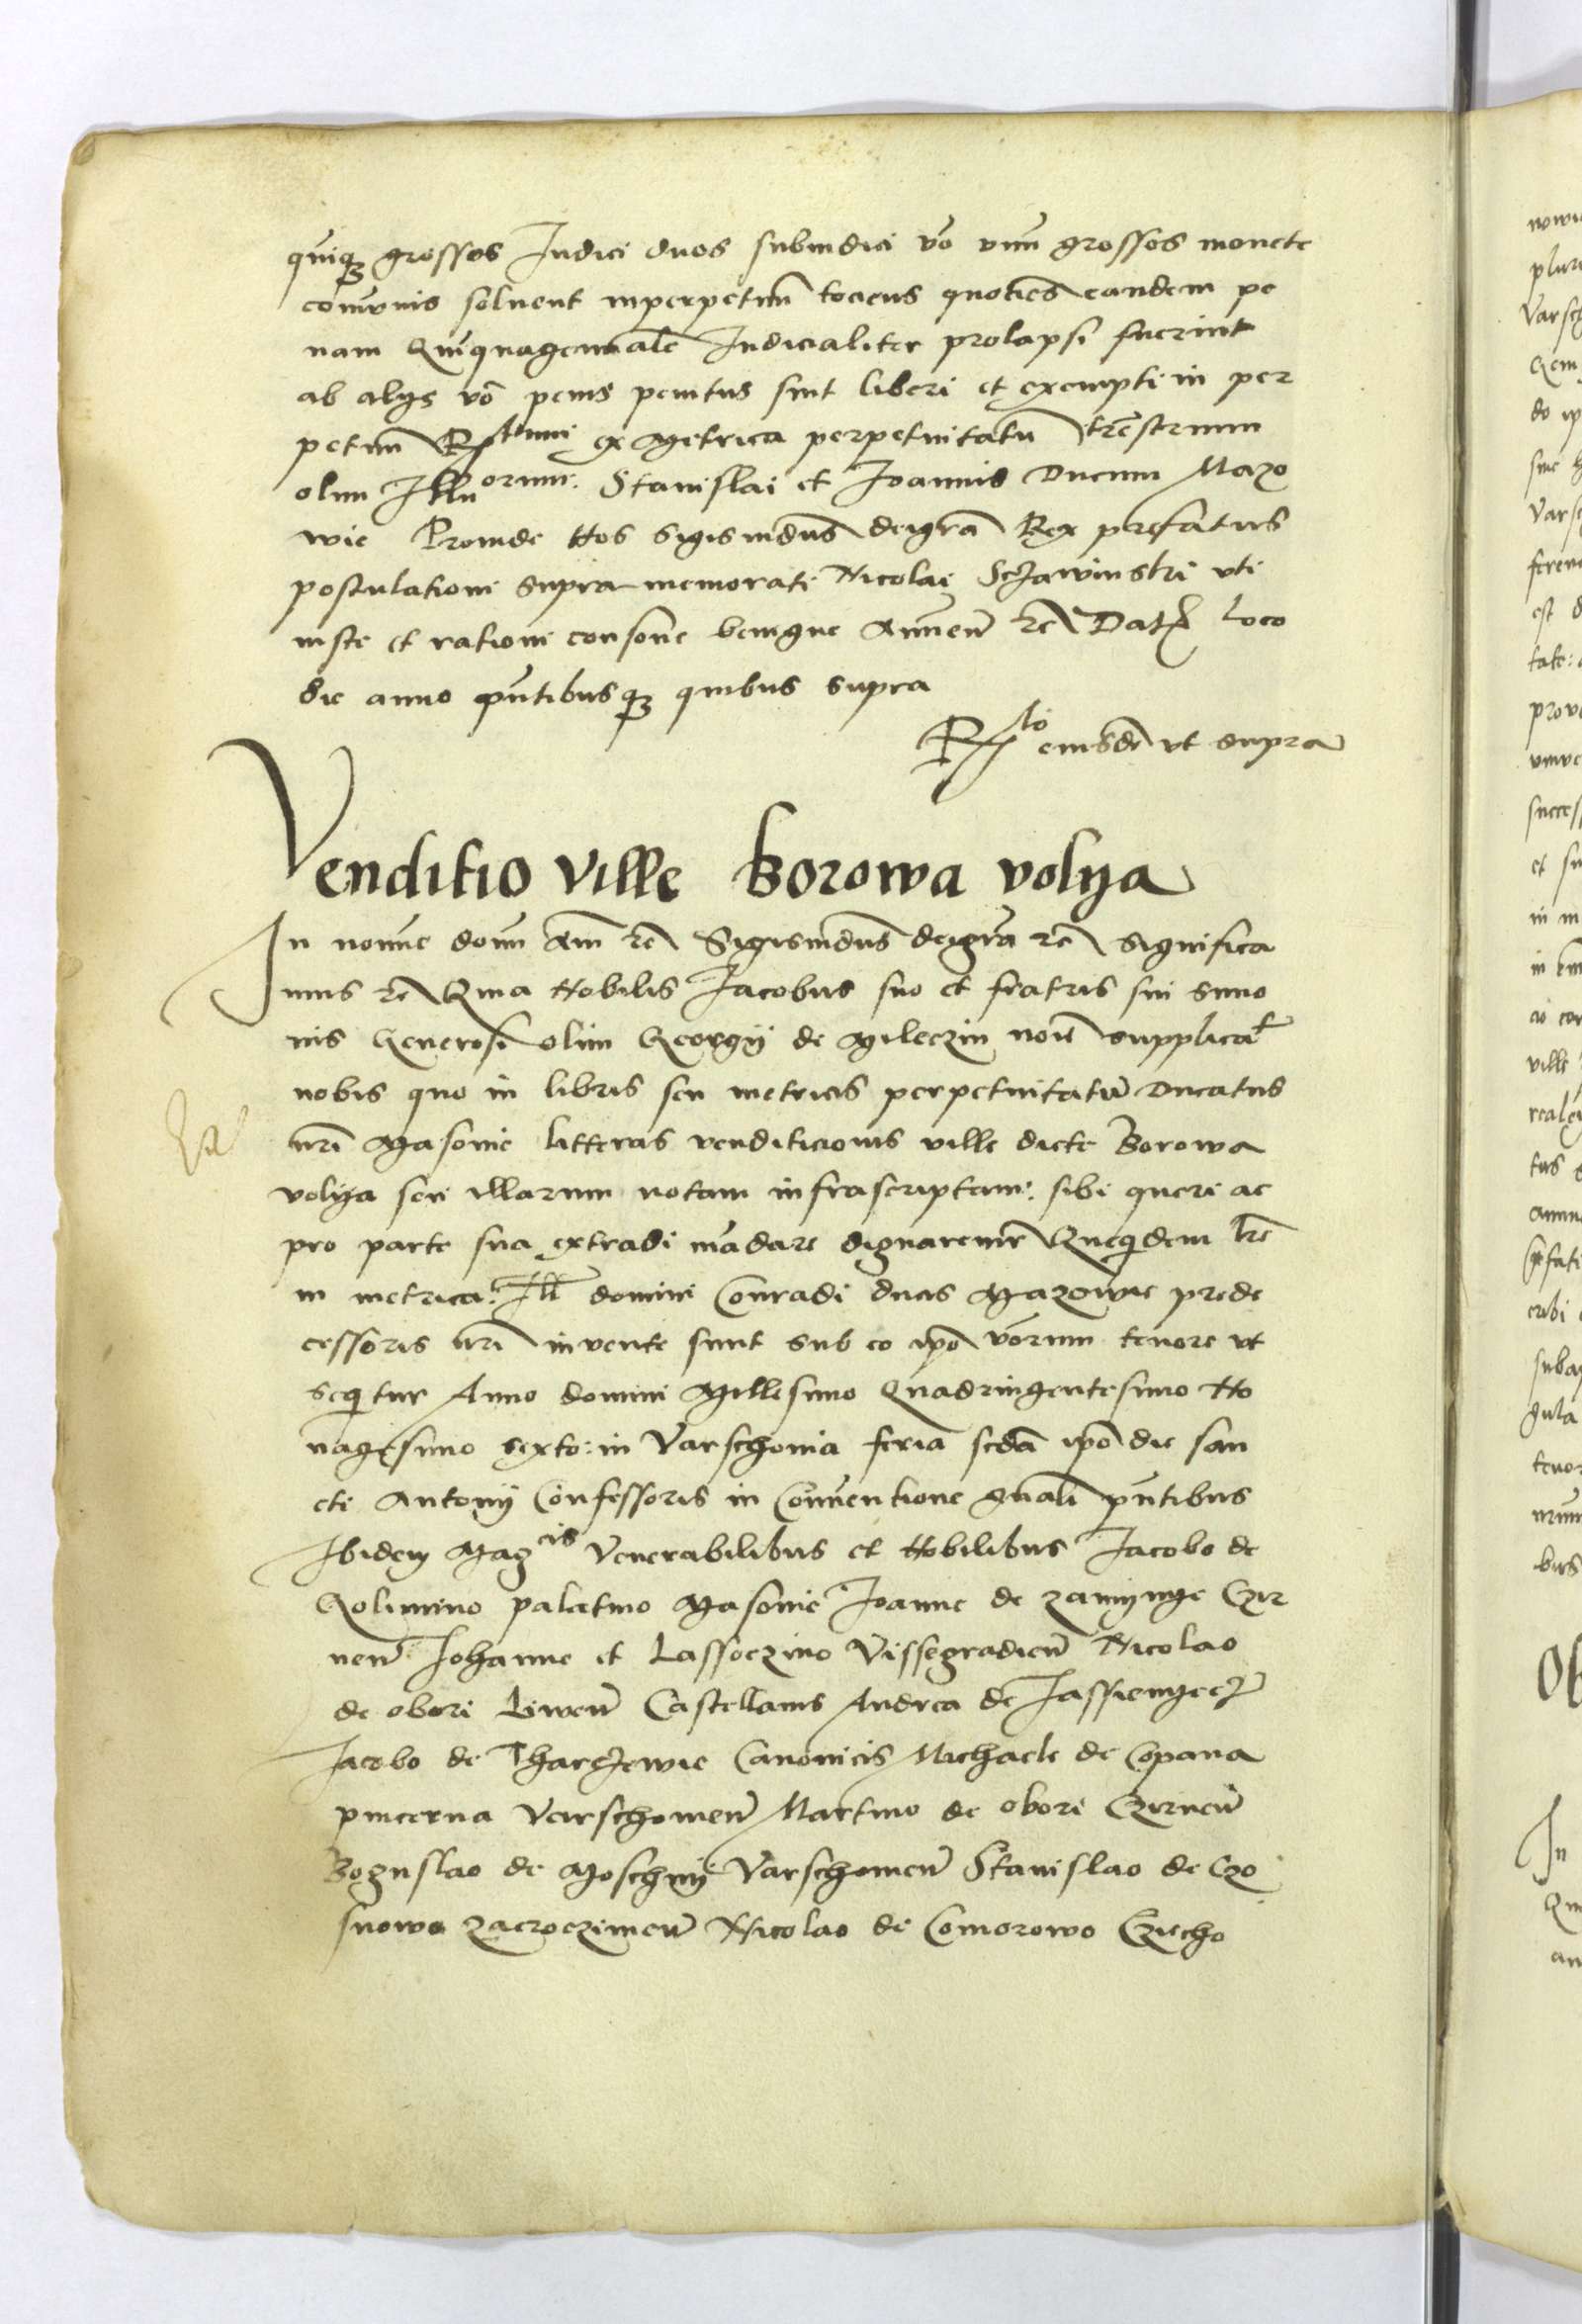 quiq3 grossos Iudici duos subiudici vo vnu grossos monete
comunis soluent inperpetuu tociens quotiens eandem pe
nam Quinquagenale Iudicialiter prolapsi fuerint
ab alys vo penis penitus sint liberi et exempti in per
petuu ex Metrica perpetuitatu terrestrium
olim Illu orum: Stanislai et Ioannis Ducum Mazo
wie Proinde Nos Sigismdus deigra Rex prefatus
postulationi supra memorati Nicolai uti
iuste et rationi consone benigne Annuen rc Dat loco
die anno pntibusq3 quibus supra
Rlo eiusde vt supra
Venditio ville Borowa volya
In nomine domi Am rc Sigismdus deigra rc significa
mus rc Quia Nobilis Iacobus suo et fratris sui simo
nis Generosi olim Georgij de Mileczin noie supplicat
nobis quo in libris seu metricis perpetuitatu Ducatus
nri Masouie litteras venditionis ville dicte Borowa
volya seu illarum notam infrascriptam: sibi queri ac
pro parte sua extradi madare dignaremr Quequidem lre
in metrica: Ill domini Conradi ducis Mazowie prede
cessoris nri invente sunt sub eo ipo vborum tenore vt
sequitur Anno domini Millesimo Quadringentesimo No
nagesimo sexto: in Varschouia feria scda ipo die san
cti Antonij Confessoris in Conuentione gnali pntibus
Ibidem Magcis Venerabilibus et Nobilibus Iacobo de
Golimino palatino Masouie Ioanne de zaminge Czir
nen Iohanne et Lassoczino Vissegradien Nicolao
de obori Liwen Castellanis Andrea de
Iacobo de Canonicis Michaele de Copana
pincerna Varschouien Martino de obori Czirnen
Boguslao de Moschny Varschouien Stanislao de Czo
snowo zacroczimen Nicolao de Comorowo Czicho